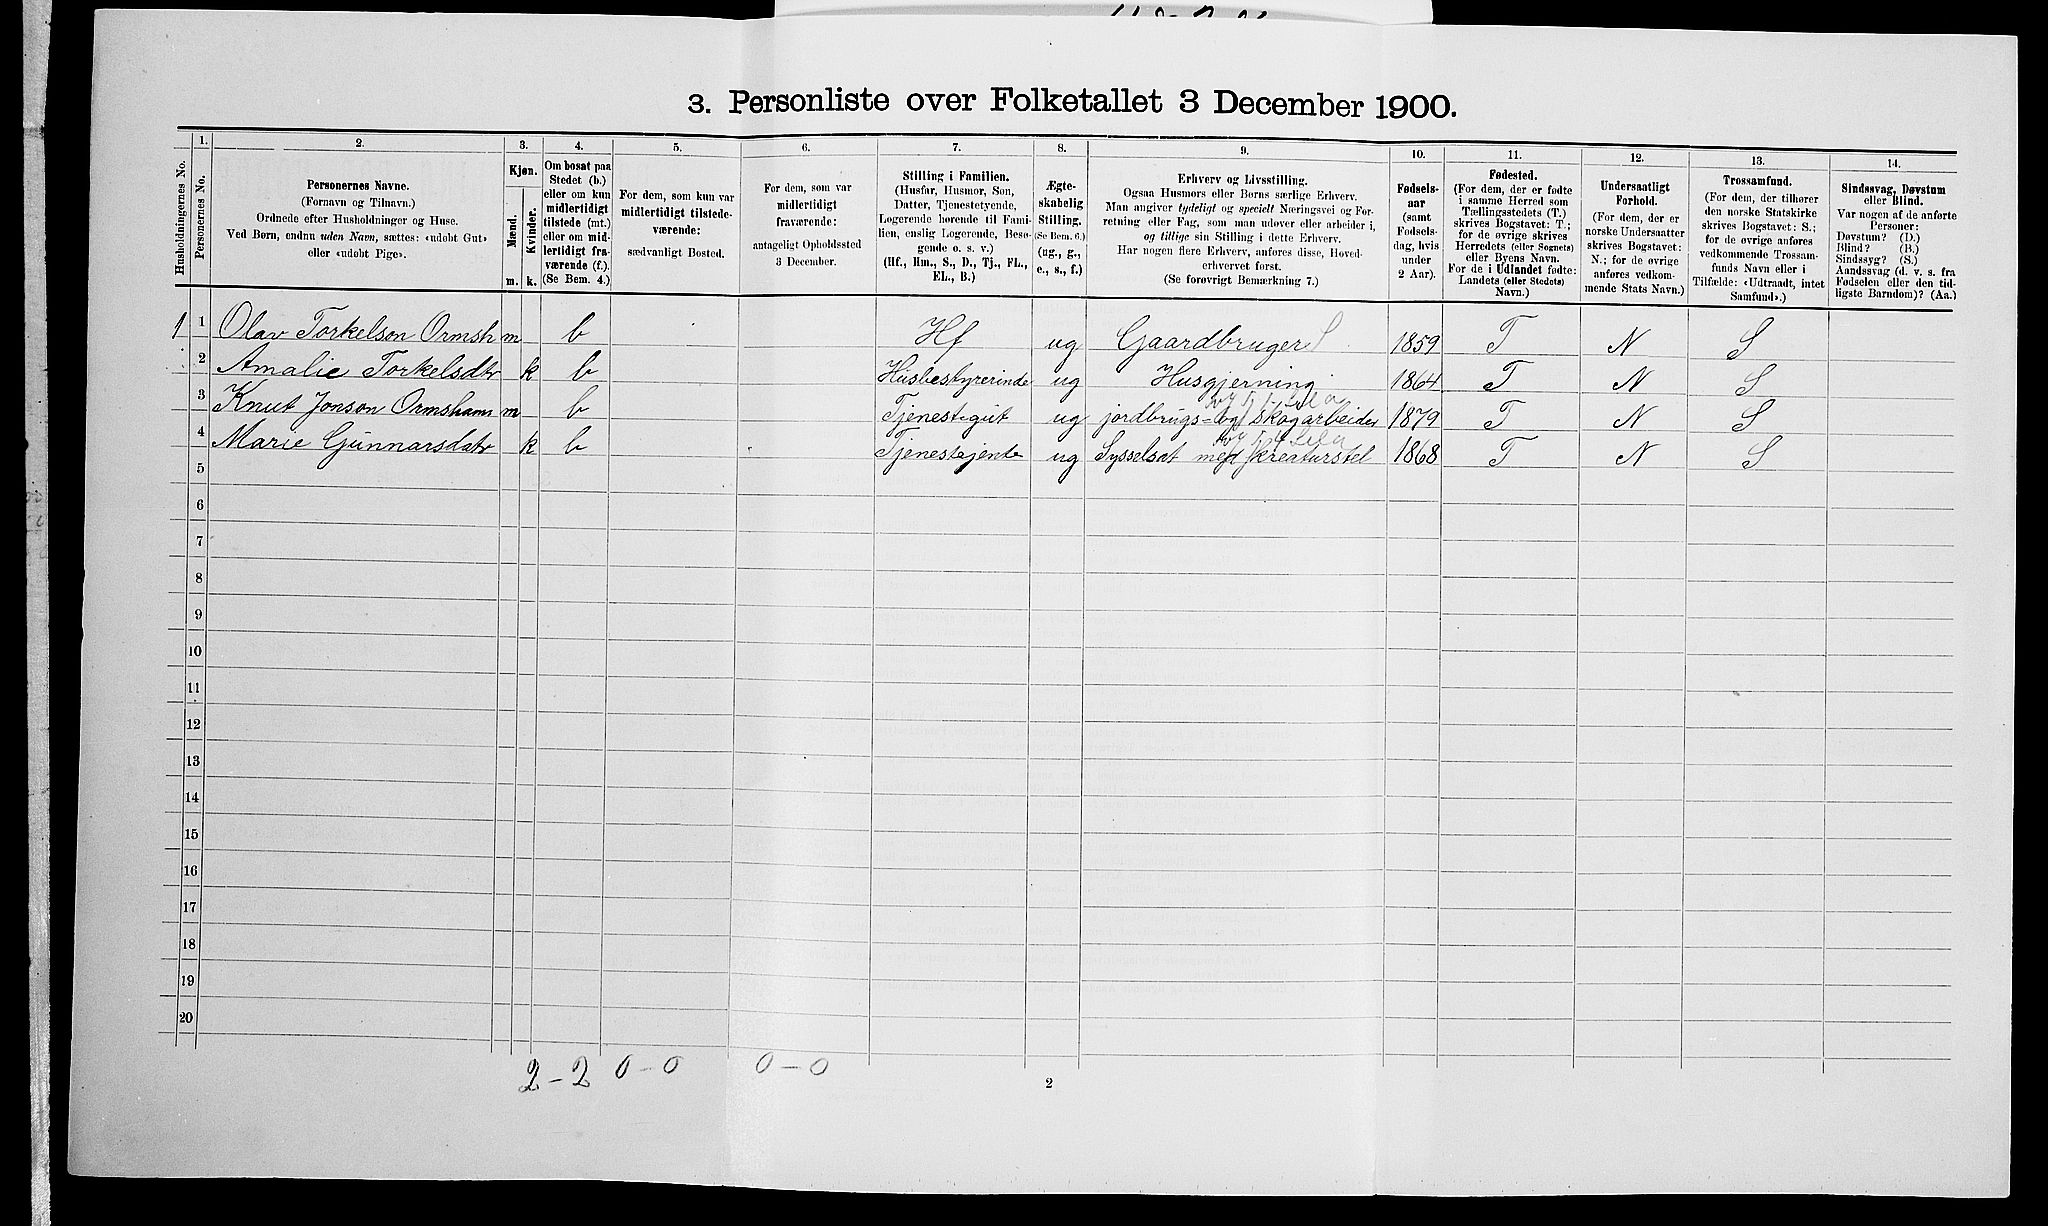 3. Personliste over Folketallet 3 December 1900.
1. 2. 3. 4. 5. 6. 7. 8. 9. 10. 11. 12. 13. 14.
Husholdningernes No.
Personernes No.
Personernes Navne.
(Fornavn og Tilnavn.)
Ordnede efter Husholdninger og Huse.
Ved Børn, endnu uden Navn, sættes: «udøbt Gut»
eller «udøbt Pige».
Kjøn.
Mænd.
Kvinder.
m. k.
Om bosat paa
Stedet (b.)
eller om kun
midlertidigt
tilstede (mt.)
eller om mid-
lertidigt fra-
værende (f.).
(Se Bem. 4.)
For dem, som kun var
midlertidigt tilstede-
værende:
sædvanligt Bosted.
For dem, som var
midlertidigt
fraværende:
antageligt Opholdssted
3 December.
Stilling i Familien.
(Husfar, Husmor, Søn,
Datter, Tjenestetyende,
Logerende hørende til Fami-
lien, enslig Logerende, Besø-
gende o. s. v.)
(Hf., Hm., S., D., Tj., FL.,
EL., B.)
Ægte-
skabelig
Stilling.
(Se Bem. 6.)
(ug., g.,
e., s., f.)
Erhverv og Livsstilling.
Ogsaa Husmors eller Børns særlige Erhverv.
Man angiver tydeligt og specielt Næringsvei og For-
retning eller Fag, som man udøver eller arbeider i,
og tillige sin Stilling i dette Erhverv.
Har nogen flere Erhverv, anføres disse, Hoved-
erhvervet først.
(Se forøvrigt Bemærkning 7.)
Fødsels-
aar
(samt
Fødsels-
dag, hvis
under
2 Aar).
Fødested.
(For dem, der er fødte
i samme Herred som
Tællingsstedets (T.)
skrives Bogstavet: T.;
for de øvrige skrives
Herredets (eller Sognets)
eller Byens Navn.
For de i Udlandet fødte:
Landets (eller Stedets)
Navn.)
Undersaatligt
Forhold.
(For dem, der er
norske Undersaatter
skrives Bogstavet:
N.; for de øvrige
anføres vedkom-
mende Stats Navn.)
Trossamfund.
(For dem, der tilhører
den norske Statskirke
skrives Bogstavet: S.;
for de øvrige anføres
vedkommende Trossam-
funds Navn eller i
Tilfælde: «Udtraadt, intet
Samfund».)
Sindssvag, Døvstum
eller Blind.
Var nogen af de anførte
Personer:
Døvstum? (D.)
Blind? (B.)
Sindssyg? (S.)
Aandssvag (d. v. s. fra
Fødselen eller den tid-
ligste Barndom)? (Aa.)
1 1 Olav Torkelson Ormsh m b Hf ug Gaardbruger S 1859 T N S
2 Amalie Torkelsdtr k b Husbestyrerinde ug Husgjerning 1864 T N S
3 Knut Jonson Ormsham m b Tjenestegut ug jordbrugs- og skogarbeider 1879 T N S
4 Marie Gunnarsdatr k b Tjenestejente ug Sysselsat med kreaturstel 1868 T N S
5
6
7
8
9
10
11
12
13
14
15
16
17
18
19
20
2 - 2 0 - 0 0 - 0
2